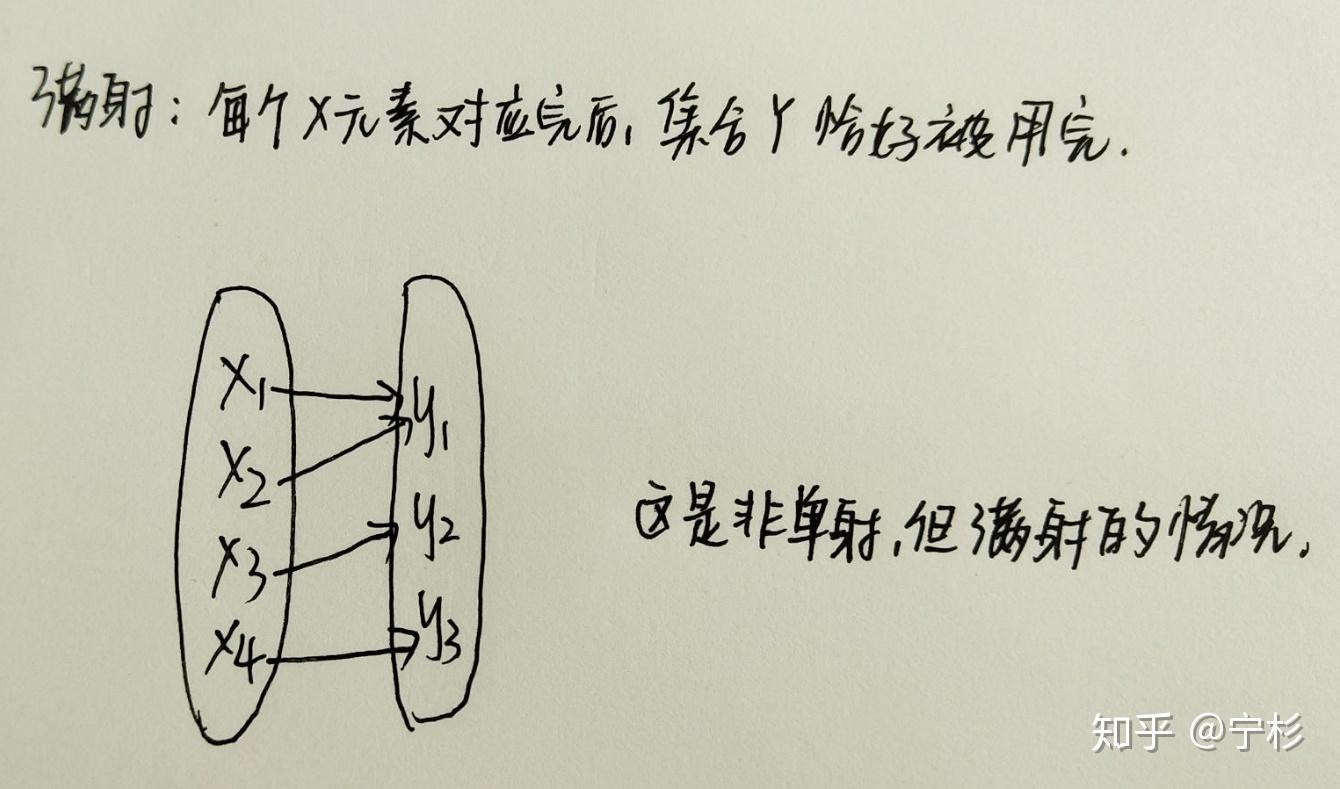 满射：每个X元素对应完后，集合Y恰好被用完.
x1
y1
x2
y2
x3
y3
x4
这是非单射，但满射的情况，
知乎 @宁杉